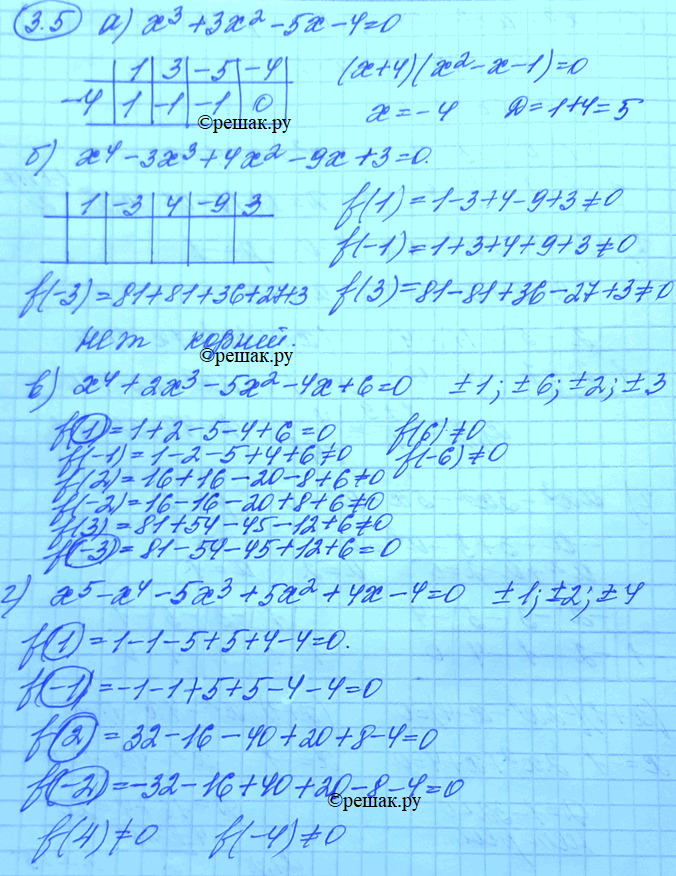 3.5 а) x³ + 3x² - 5x - 4 = 0
1 | 3 | -5 | -4
-4 | 1 | -1 | -1 | 0
(x+4)(x² - x - 1) = 0
x = -4 D = 1+4 = 5
©решак.ру
б) x⁴ - 3x³ + 4x² - 9x + 3 = 0.
1 | -3 | 4 | -9 | 3
f(1) = 1-3+4-9+3 ≠ 0
f(-1) = 1+3+4+9+3 ≠ 0
f(-3) = 81+81+36+27+3 f(3) = 81-81+36-27+3 ≠ 0
нет корний.
©решак.ру
в) x⁴ + 2x³ - 5x² - 4x + 6 = 0 ±1; ±6; ±2; ±3
f(1) = 1+2-5-4+6 = 0 f(6) ≠ 0
f(-1) = 1-2-5+4+6 ≠ 0 f(-6) ≠ 0
f(2) = 16+16-20-8+6 ≠ 0
f(-2) = 16-16-20+8+6 ≠ 0
f(3) = 81+54-45-12+6 ≠ 0
f(-3) = 81-54-45+12+6 = 0
г) x⁵ - x⁴ - 5x³ + 5x² + 4x - 4 = 0 ±1; ±2; ±4
f(1) = 1-1-5+5+4-4 = 0.
f(-1) = -1-1+5+5-4-4 = 0
f(2) = 32-16-40+20+8-4 = 0
f(-2) = -32-16+40+20-8-4 = 0
©решак.ру
f(4) ≠ 0 f(-4) ≠ 0